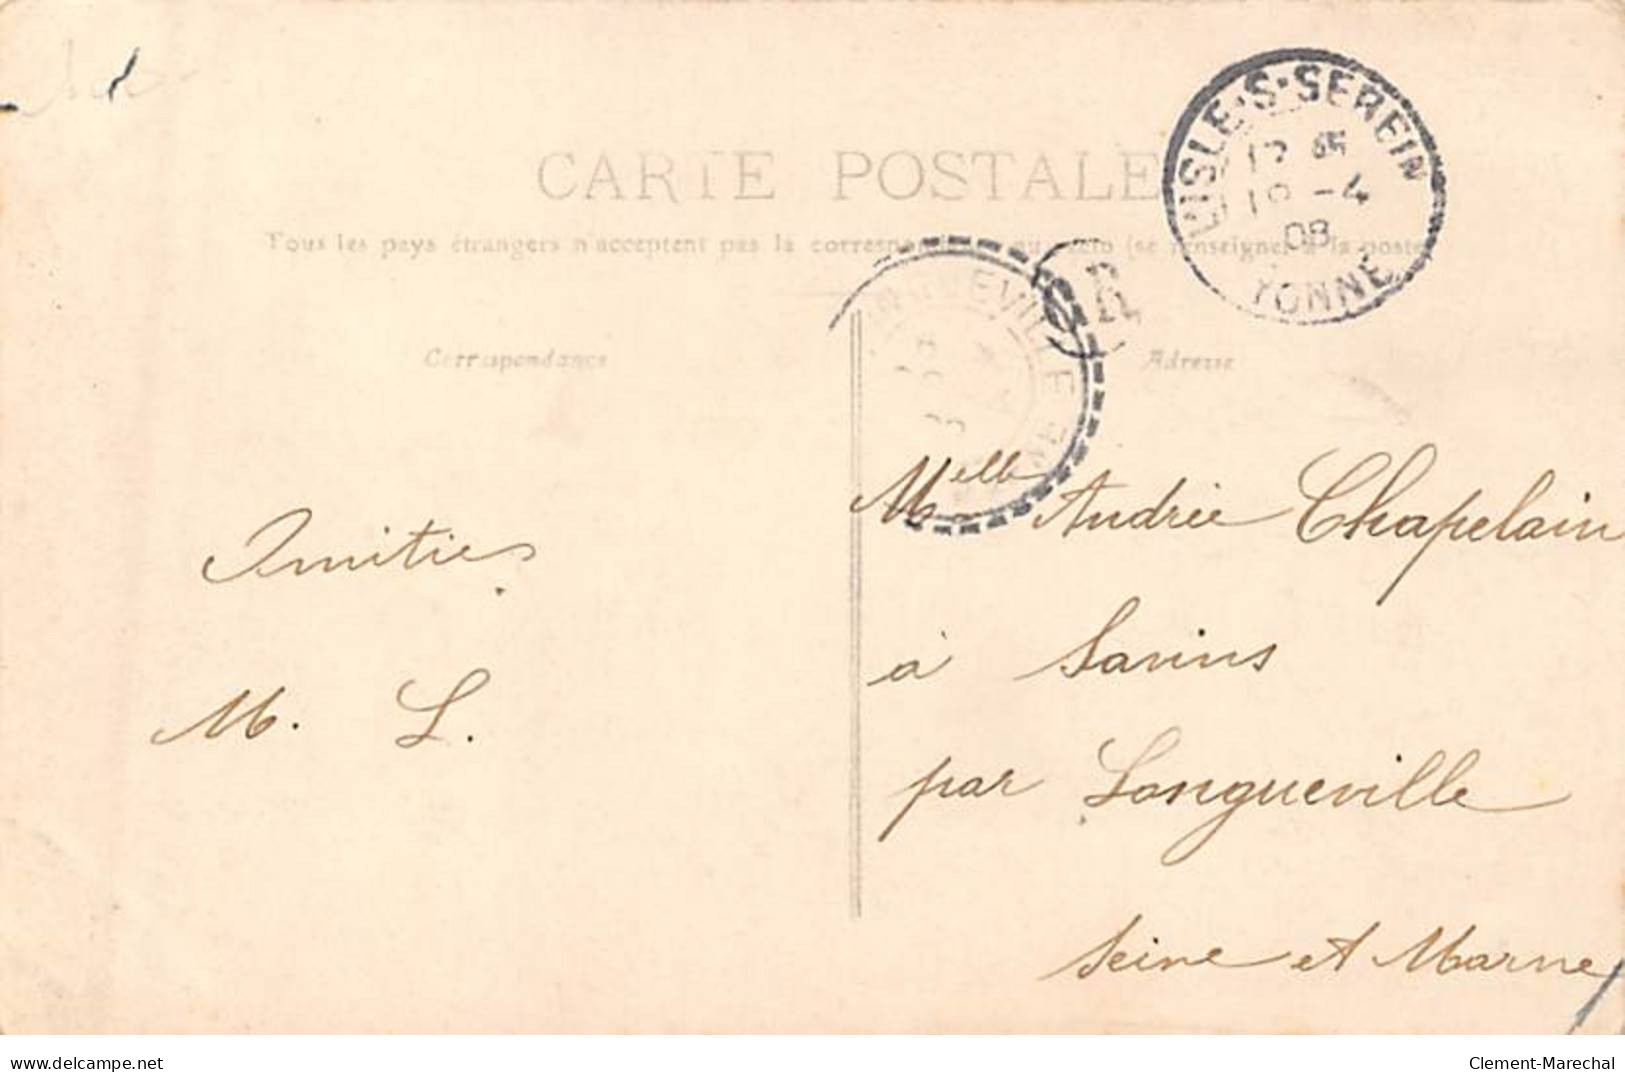 L'ISLE-S-SEREIN
-4
08
YONNE
CARTE POSTALE
Tous les pays étrangers n'acceptent pas la (se renseigner à la poste
Correspondance
Adresse
Amitiés
M. L.
Melle Andrée Chapelain
à Savins
par Longueville
Seine et Marne
delcampe.net
Clement-Marechal